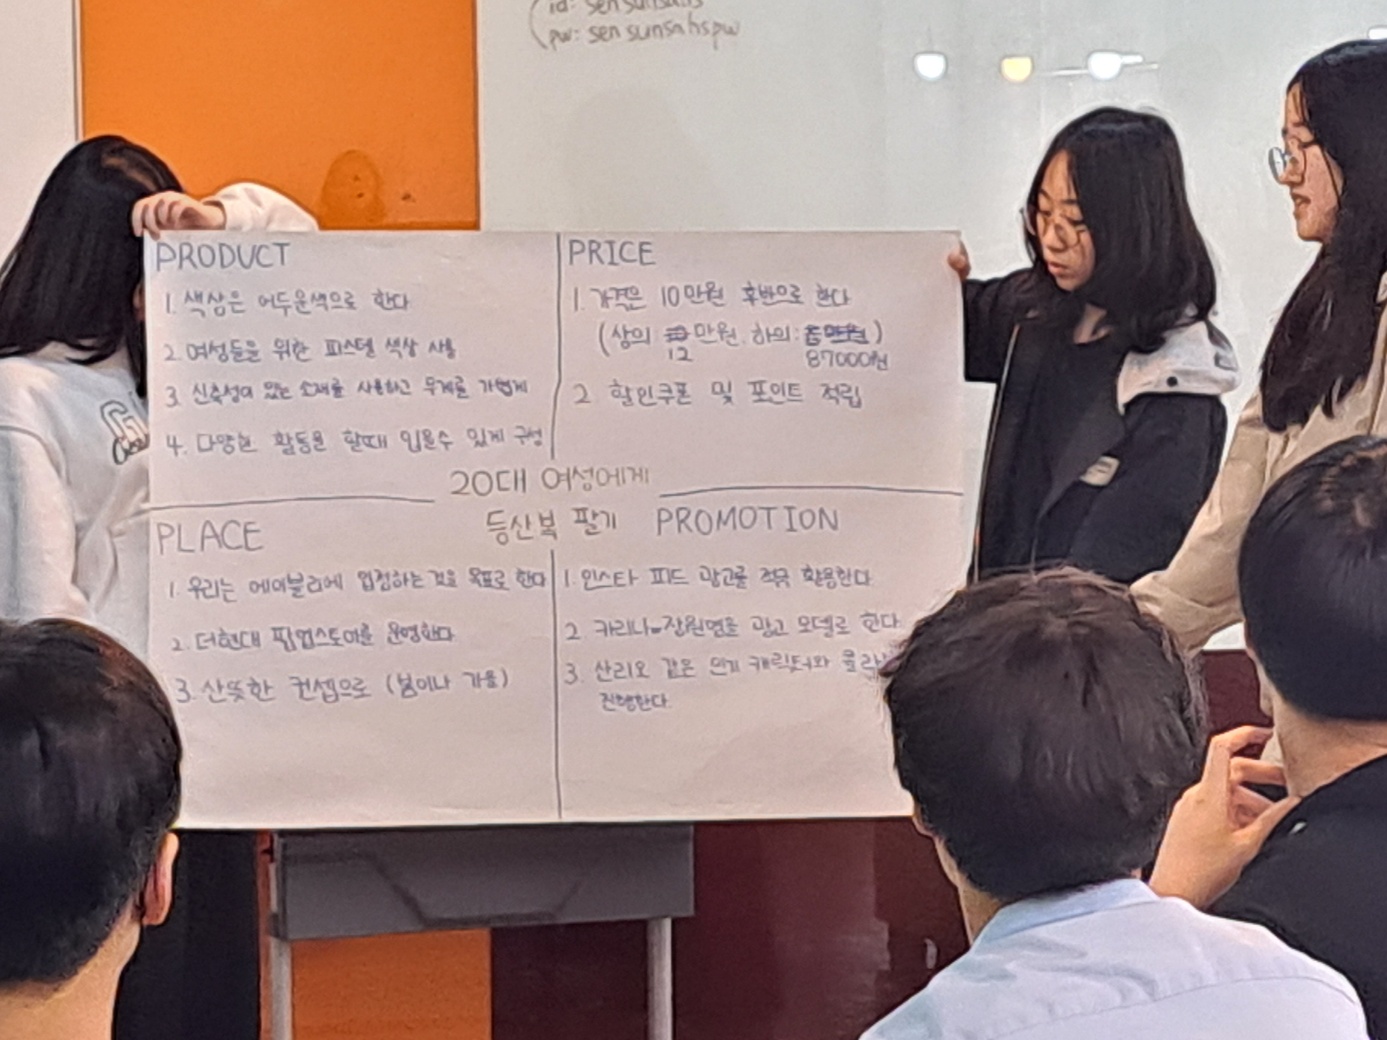 pw: sensunsahspw
PRODUCT
1. 색상은 어두운색으로 한다
2. 여성들을 위한 파스텔 색상 사용
3. 신축성이 있는 소재를 사용하고 무게를 가볍게
4. 다양한 활동을 할때 입을수 있게 구성
PRICE
1. 가격은 10만원 후반으로 한다
(상의 만원. 하의: )
12 87000원
2 할인쿠폰 및 포인트 적립
20대 여성에게
등산복 팔기
PLACE
1. 우리는 에이블리에 입점하는 것을 목표로 한다
2. 더현대 팝업스토어를 운영한다
3. 산뜻한 컨셉으로 (봄이나 가을)
PROMOTION
1. 인스타 피드 광고를 적극 활용한다.
2 카리나 장원영을 광고 모델로 한다.
3. 산리오 같은 인기 캐릭터와
진행한다.